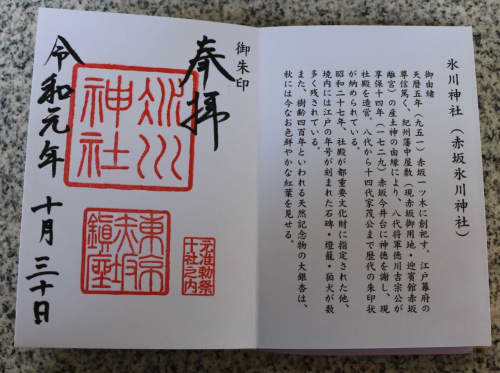 氷川神社(赤坂氷川神社)
御由緒
天暦五年(九五一)赤坂一ツ木に創祀す。江戸幕府の
尊信篤く、紀州藩中屋敷(現赤坂御用地・迎賓館赤坂
離宮)の産土神の由縁により、八代将軍徳川吉宗公が
享保十四年(一七二九)赤坂今井台に神徳を謝し、現
社殿を造営、八代から十四代家茂公まで歴代の朱印状
が納められている。
昭和二十七年、社殿が都重要文化財に指定された他、
境内には江戸の年号が刻まれた石碑・燈籠・狛犬が数
多く残されている。
また、樹齢四百年といわれる天然記念物の大銀杏は、
秋には今なお色鮮やかな紅葉を見せる。
御朱印
奉拝
氷川
神社
東京
赤坂
鎮座
元准勅祭
十社之内
令和元年十月三十日